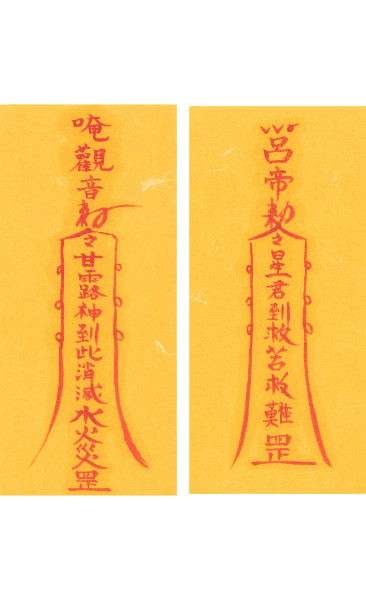 唵觀音勅令甘露神到此消滅水火災罡
呂帝勅令星君到救苦救難罡